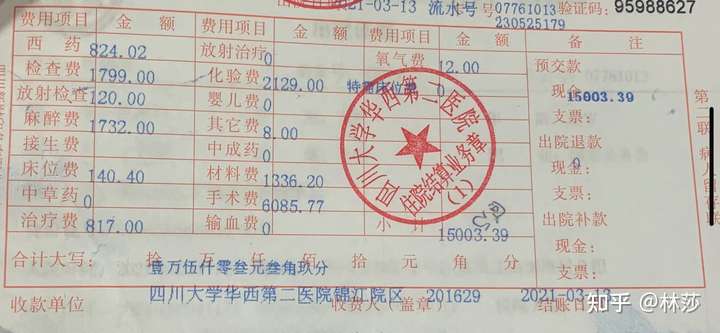 021-03-13 流水号 07761013 验证码: 95988627
230525179
费用项目 金 额 费用项目 金 额 费用项目 金 额 备 注
西 药 824.02 放射治疗 0 氧气费 12.00 预交款
检查费 1799.00 化验费 2129.00 特需床位费 0 现金: 15003.39
放射检查 120.00 婴儿费 0 支票:
麻醉费 1732.00 其它费 8.00 出院退款
接生费 中成药 0 现金: 0
床位费 140.40 材料费 1336.20 支票:
中草药 0 手术费 6085.77 出院补款
治疗费 817.00 输血费 0 小 计 15003.39 现金:
合计大写: 拾 万 仟 佰 拾 元 角 分 支票:
壹万伍仟零叁元叁角玖分
收款单位 四川大学华西第二医院锦江院区 收费人(盖章) 201629 结账日 2021-03-13
四川大学华西第二医院
住院结算业务章
(1)
第二联 病人
知乎 @林莎